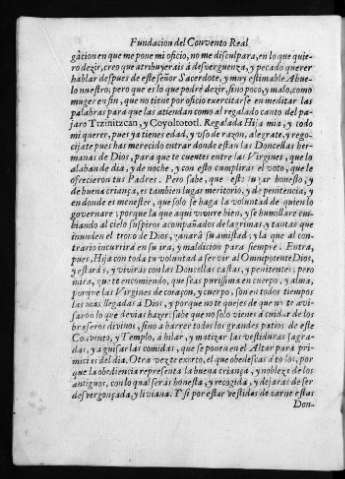 Fundacion del Convento Real
gacion en que me pone mi oficio, no me disculpara, en lo que quie-
ro dezir, creo que atribuyerais à desverguenza, y pecado querer
hablar despues de este señor Sacerdote, y muy estimable Abue-
lo nuestro, pero que es lo que podrè dezir, sino poco, y malo, como
muger en fin, que no tiene por oficio exercitarse en meditar las
palabras para que las atiendan como al regalado canto del pa-
jaro Tzinitzcan, y Coyoltototl. Regalada Hija mia, y todo
mi querer, pues ya tienes edad, y uso de razon, alegrate, y rego-
cijate pues has merecido entrar donde estan las Doncellas her-
manas de Dios, para que te cuentes entre las Virgines, que lo
alaban de dia, y de noche, y con esto cumplirar el voto, que le
ofrecieron tus Padres. Pero sabe, que este lugar honesto, y
de buena criança, es tambien lugar meritorio, y de penitencia, y
en donde es menester, que solo se haga la voluntad de quien lo
governare; porque la que aqui viviere bien, y se humillare em-
biando al cielo suspiros acompañados de lagrimas, y tantas que
inunden el trono de Dios, ganarà su amistad; y la que al con-
trario incurrirà en su ira, y maldicion para siempre. Entra,
pues, Hija con toda tu voluntad a servir al Omnipotente Dios,
y estaràs, y viviràs con las Doncellas castas, y penitentes; pero
mira, que te encomiendo, que seas purissima en cuerpo, y alma,
porque las Virgines de coraçon, y cuerpo, son en todos tiempos
las mas llegadas à Dios, y porque no te quejes de que no te avi-
saron lo que devias hazer; sabe que no solo vienes à cuidar de los
braseros divinos, sino à barrer todos los grandes patios de este
Convento, y Templo, a hilar, y matizar las vestiduras sagra-
das, y a guisar las comidas, que se ponen en el Altar para pri-
micias del dia. Otra vez te exorto, el que obedescas à todos, por
que la obediencia representa la buena criança, y nobleze de los
antiguos, con lo qual seràs honesta, y recogida, y dejaràs de ser
desvergonçada, y liviana. Y si por estar vestidas de carne estas
Don-